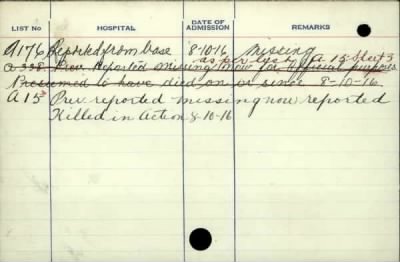 LIST No HOSPITAL DATE OF ADMISSION REMARKS
A176 Reported from base 8-10-16 Missing
as per list A 15 Sheet 3
A 338 Prev. Reported Missing now for Official purposes
Presumed to have died on or since 8-10-16.
A 15³ Prev. reported missing now reported
Killed in Action 8-10-16